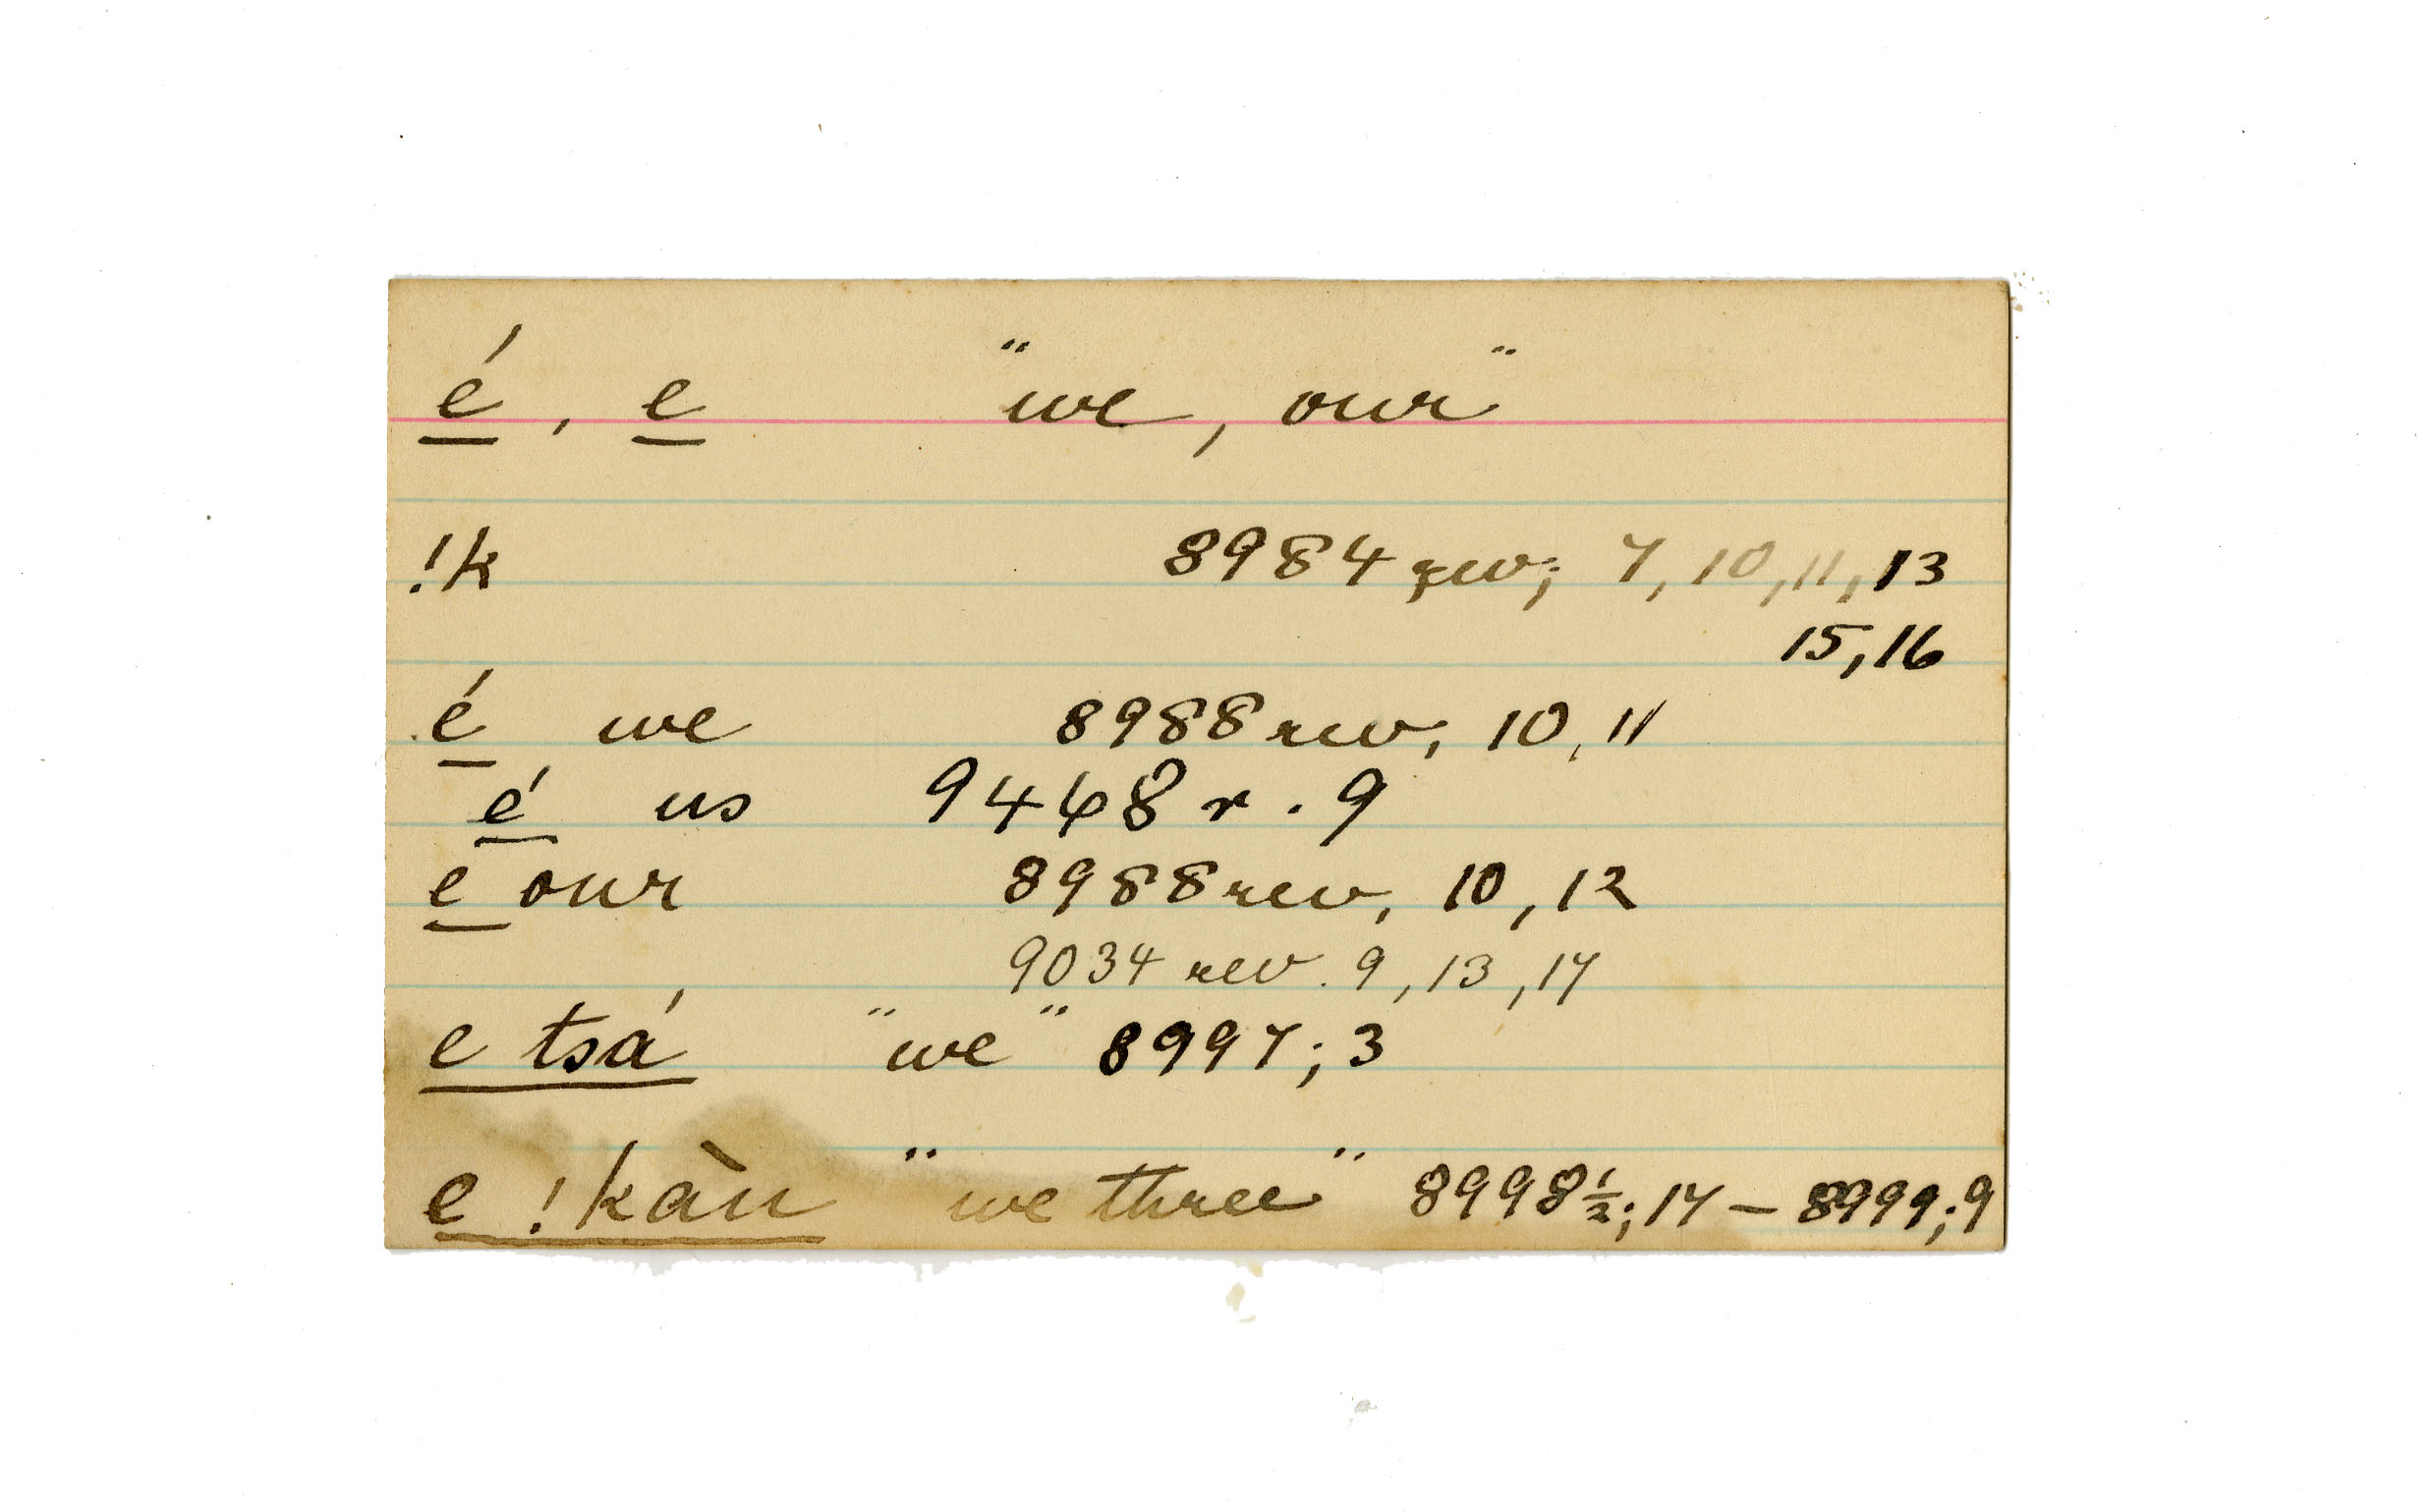 é, e "we, our"
!k 8984 rev; 7, 10, 11, 13
15, 16
é we 8988 rev, 10, 11
é us 9468 r. 9
e our 8988 rev, 10, 12
9034 rev. 9, 13, 17
e tsá "we" 8997; 3
e !kàn "we three" 8998½; 17 – 8999; 9